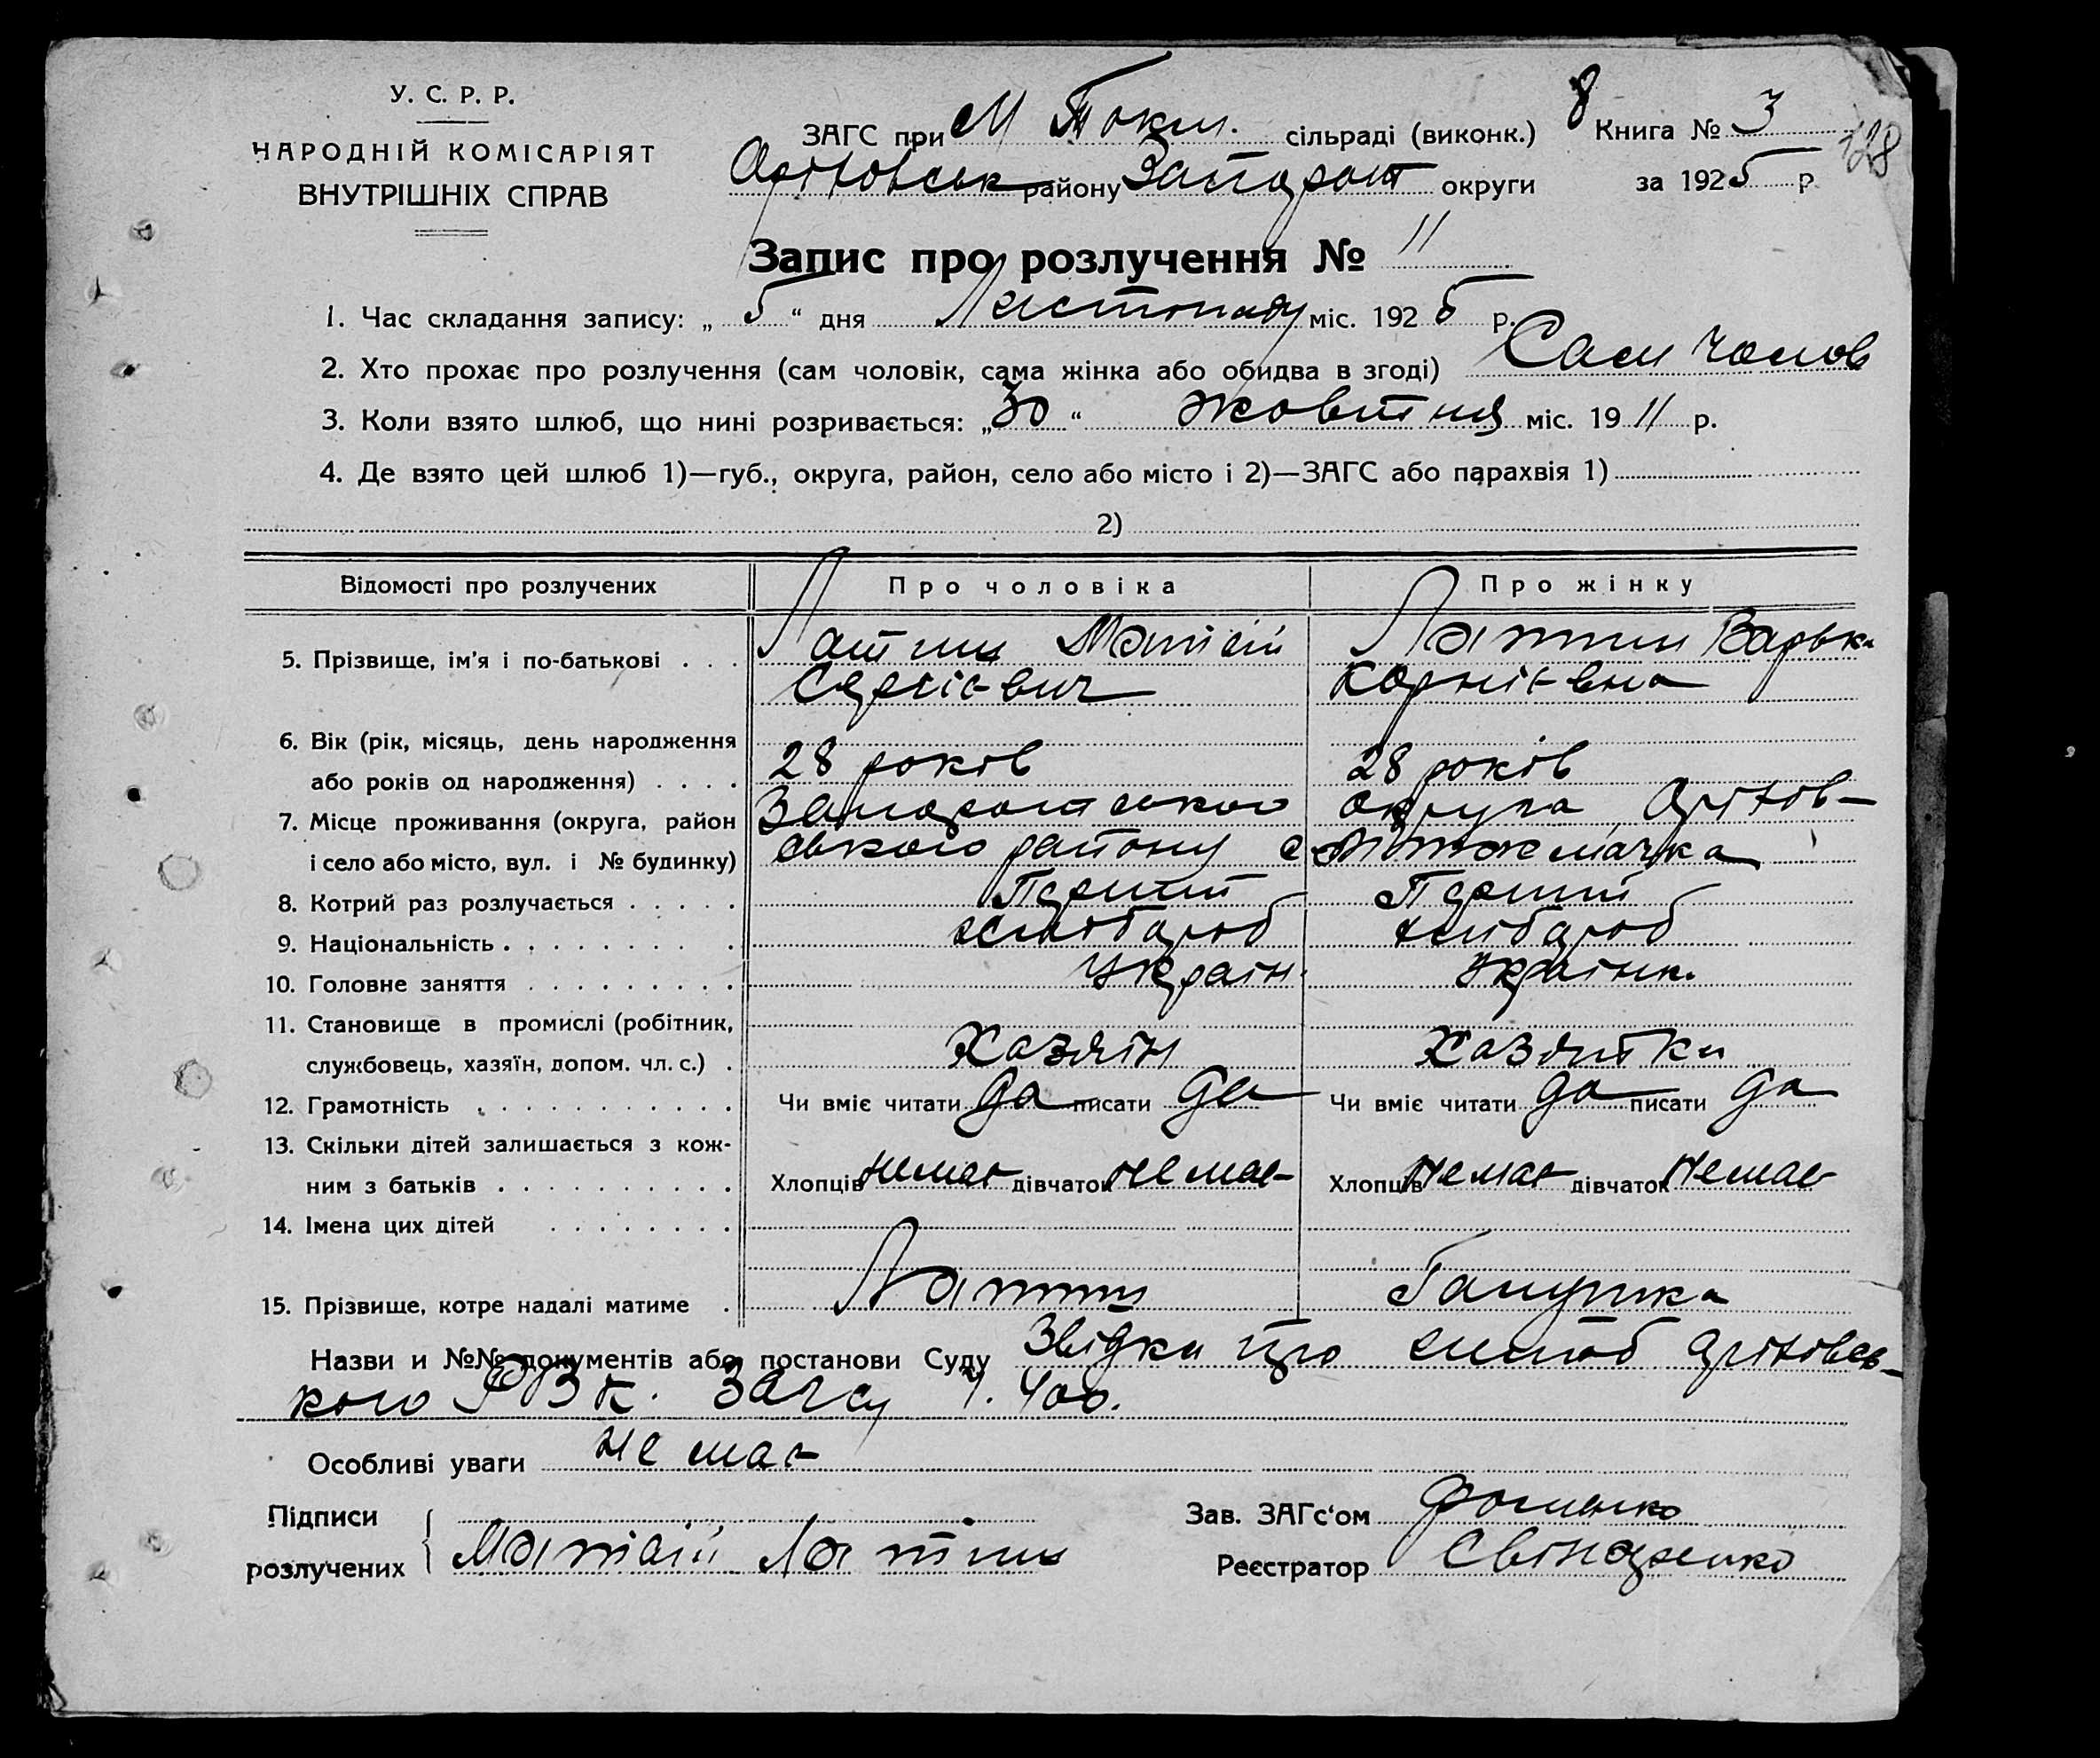 У. С. Р. Р.
НАРОДНІЙ КОМІСАРІЯТ
ВНУТРІШНІХ СПРАВ
ЗАГС при М Токм. сільраді (виконк.)
8 Книга № 3
128
Оріховськ району Запорожт округи
за 1925 р
Запис про розлучення № 11
1. Час складання запису: „ 5 “ дня Листопаду міс. 1925 р.
2. Хто прохає про розлучення (сам чоловік, сама жінка або обидва в згоді) Сам чолов
3. Коли взято шлюб, що нині розривається: „ 30 “ жовтня міс. 19 11 р.
4. Де взято цей шлюб 1)—губ., округа, район, село або місто і 2)—ЗАГС або парахвія 1)
2)
Відомості про розлучених Про чоловіка Про жінку
5. Прізвище, ім'я і по-батькові . . . Латиш Матвій Латиш Варька
Сергієвич Корнієвна
6. Вік (рік, місяць, день народження
або років од народження) . . . . 28 років 28 років
7. Місце проживання (округа, район округа Оріхов-
і село або місто, вул. і № будинку) ського району с
8. Котрий раз розлучається . . . . . Перший Перший
9. Національність . . . . . . . . . хлібороб хлібороб
10. Головне заняття . . . . . . . . . Україн. Українк.
11. Становище в промислі (робітник,
службовець, хазяїн, допом. чл. с.) . Хазяїн Хазяйка
12. Грамотність . . . . . . . . . . . Чи вміє читати да писати да Чи вміє читати да писати да
13. Скільки дітей залишається з кож-
ним з батьків . . . . . . . . . . Хлопців немає дівчаток немає Хлопців немає дівчаток немає
14. Імена цих дітей . . . . . . . .
15. Прізвище, котре надалі матиме . Латиш
Назви и №№ документів або постанови Суду Звідки про шлюб Оріховсь-
кого РВК. Загсу
Особливі уваги немає
Підписи
розлучених Матвій Латиш
Зав. ЗАГс'ом Фоменко
Реєстратор